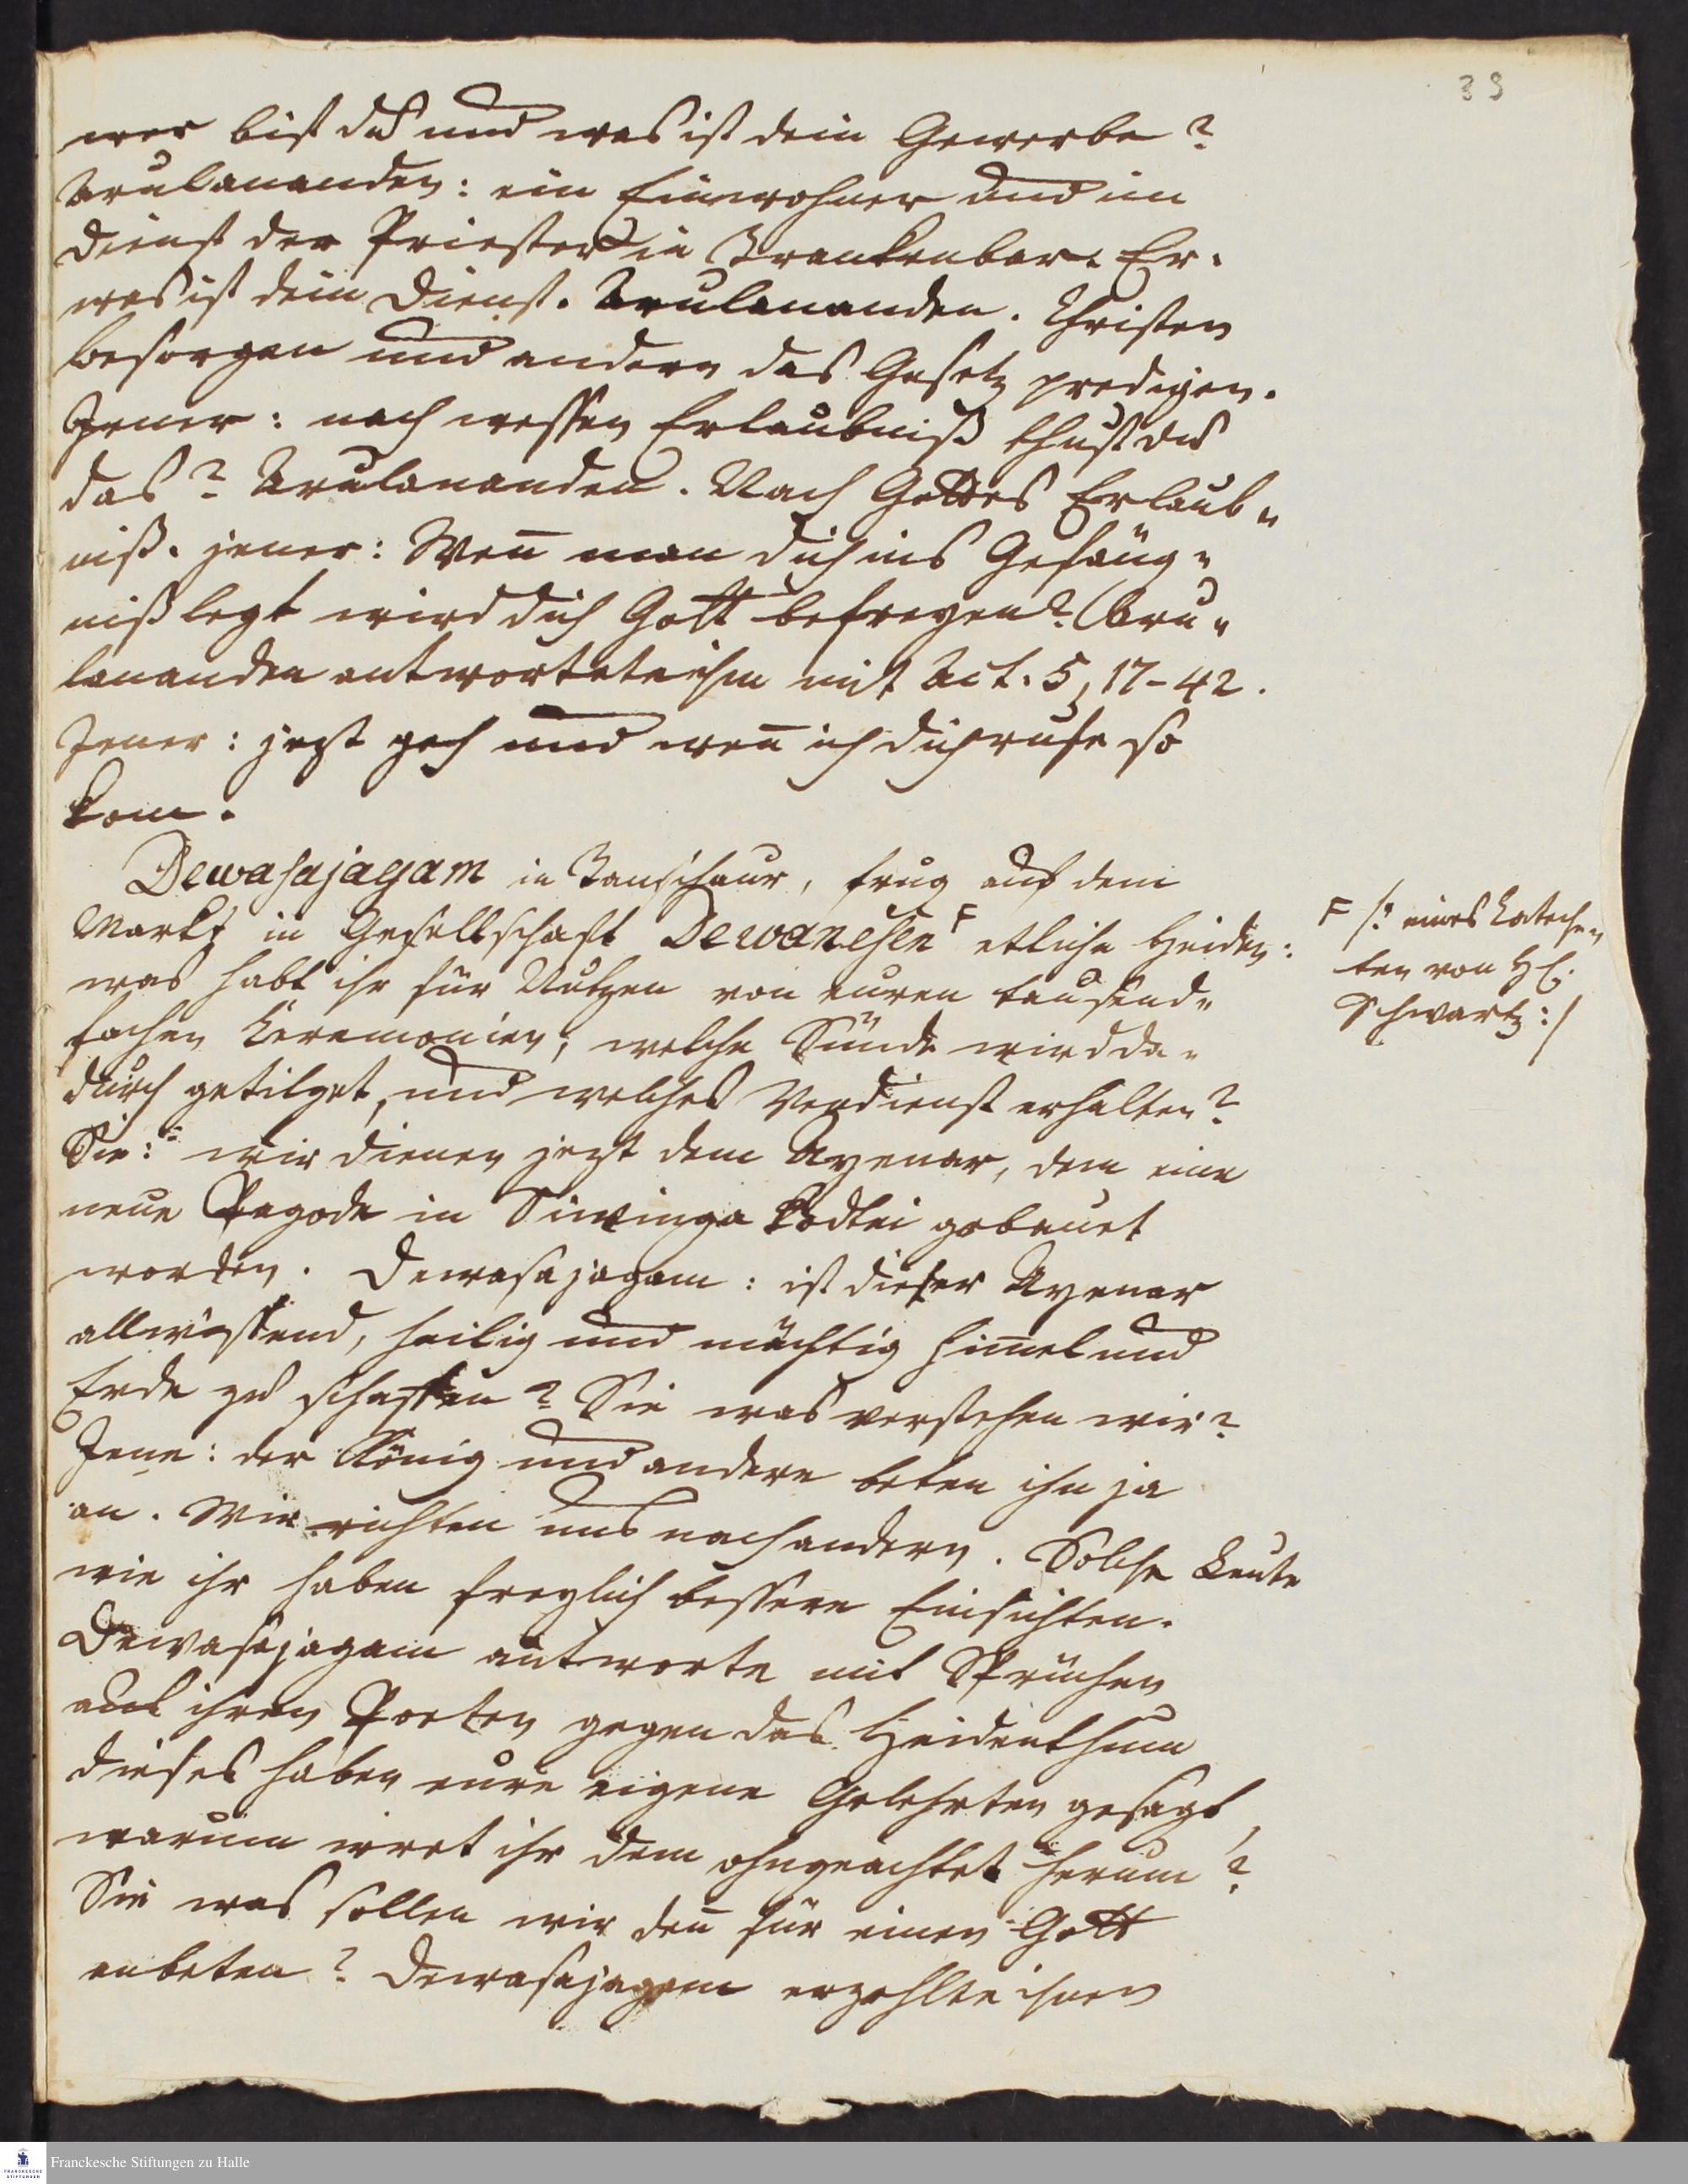 39
wer bist du und was ist dein Gewerbe?
Arulananden: ein Einwohner und im
Dienst der Priester in Trankenbar. Er.
was ist dein Dienst. Arulananden. Christen
besorgen und andern das Gesetz predigen.
Jener: nach wessen Erlaubniß thust du
das? Arulananden. Nach Gottes Erlaub„
niß. jener: Weñ man dich ins Gefäng„
niß legt wird dich Gott befreyen? Aru„
lananden antwortete ihm mit Act. 5, 17-42.
Jener: jezt geh und weñ ich dich rufe so
kom.
Dewasajagam in Tanschaur, frug auf dem
Markt in Gesellschaft Dewanesen F etliche Heiden:
was habt ihr für Nutzen von euren tausend„
fachen Ceremonien; welche Sünde wird da„
durch getilget, und welches Verdienst erhalten?
Sie: wir dienen jezt dem Ayenar, dem eine
neue Pagode in Siwinga Kodtei gebauet
worden. Dewasajagam: ist dieser Ayenar
allwissend, heilig und mächtig Him̃el und
Erde zu schaffen? Sie was verstehen wir?
Jene: der König und andere beten ihn ja
an. Wir richten uns nach andern. Solche Leute
wie ihr haben freylich bessere Einsichten.
Dewasajagam antworte mit Sprüchen
aus ihren Poeten gegen das Heidenthum
dieses haben eure eigene Gelehrten gesagt,
warum irret ihr dem ohngeachtet herum?
Sie was sollen wir deñ für einen Gott
anbeten? Dewasajagam erzehlte ihnen
F /: eines Cateche„
ten von H.
Schwartz :/
Franckesche Stiftungen zu Halle